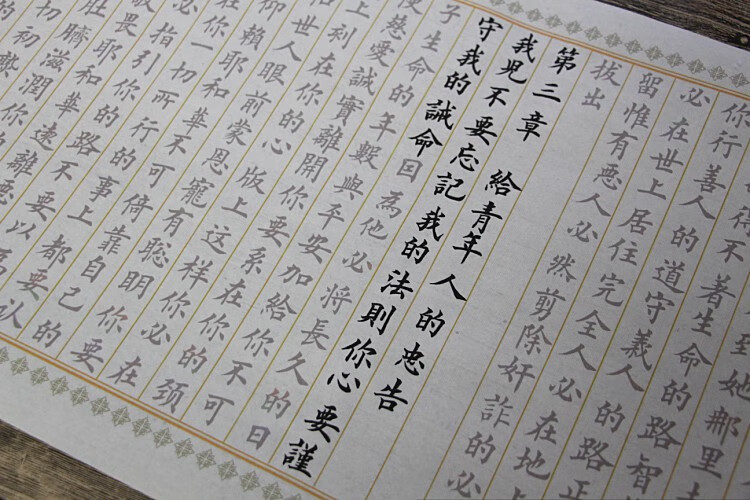 到她那里
得不著生命的路智
你行善人的道守義人的路正
必在世上居住完全人必在地上
留惟有惡人必然剪除奸詐的必
拔出
第三章 給青年人的忠告
我兒不要忘記我的法則你心要謹
守我的誡命因為他必將長久的日
子生命的年數與平安加給你不可
使慈愛誠實離開你要系在你的颈
上刻在你心版上这样你必在
世人眼前蒙恩寵有聰明你要
仰賴耶和華不可倚靠自己的
在你一切所行的事上都要认
必指引你的路不要以
敬畏耶和華遠離惡
肚臍滋潤你
切初熟
的